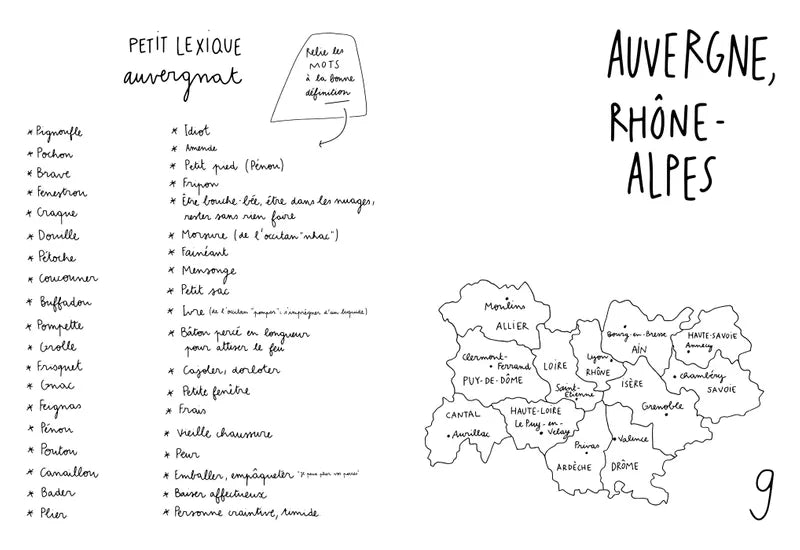 PETIT LEXIQUE
auvergnat
Relie les
MOTS
à la bonne
définition
* Pignoufle
* Pochon
* Brave
* Fenestrou
* Craque
* Douille
* Pétoche
* Coucouner
* Buffadou
* Pompette
* Grolle
* Frisquet
* Gnac
* Feignas
* Pénou
* Poutou
* Canaillou
* Bader
* Plier
* Idiot
* Amende
* Petit pied (Pénou)
* Fripon
* Être bouche-bée, être dans les nuages,
rester sans rien faire
* Morsure (de l'occitan "nhac")
* Fainéant
* Mensonge
* Petit sac
* Ivre (de l'occitan "pompar": s'imprégner d'un liquide)
* Bâton percé en longueur
pour attiser le feu
* Cajoler, dorloter
* Petite fenêtre
* Frais
* Vieille chaussure
* Peur
* Emballer, empâqueter "je peux plier vos pavés"
* Baiser affectueux
* Personne craintive, timide
AUVERGNE,
RHÔNE-
ALPES
Moulins
ALLIER
Bourg-en-Bresse
AIN
HAUTE-SAVOIE
Annecy
Clermont-
Ferrand
PUY-DE-DÔME
LOIRE
Saint-
Etienne
Lyon
RHÔNE
ISÈRE
Grenoble
Chambéry
SAVOIE
CANTAL
Aurillac
HAUTE-LOIRE
Le Puy-en-
Velay
Privas
ARDÈCHE
Valence
DRÔME
9